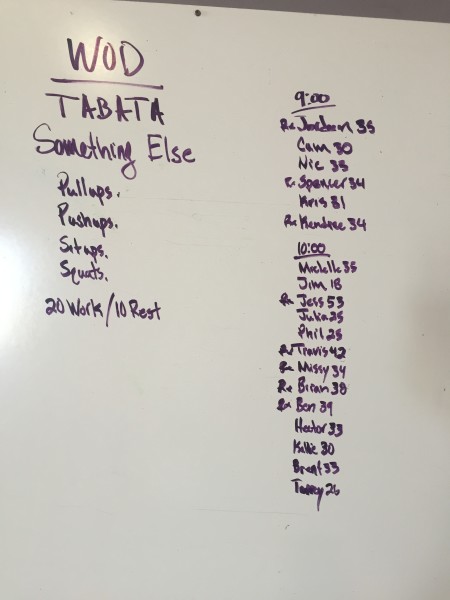 WOD
TABATA
Something Else
Pullups.
Pushups.
Situps.
Squats.
20 Work/10 Rest
9:00
Rx 35
Cam 30
Nic 35
Spencer 34
Kris 31
Rx Kendree 34
10:00
Michelle 35
Jim 18
Rx Jess 53
Julia 25
Phil 25
Rx Travis 42
Rx Missy 34
Rx Brian 38
Rx Ben 39
Hector 33
30
Brent 33
26